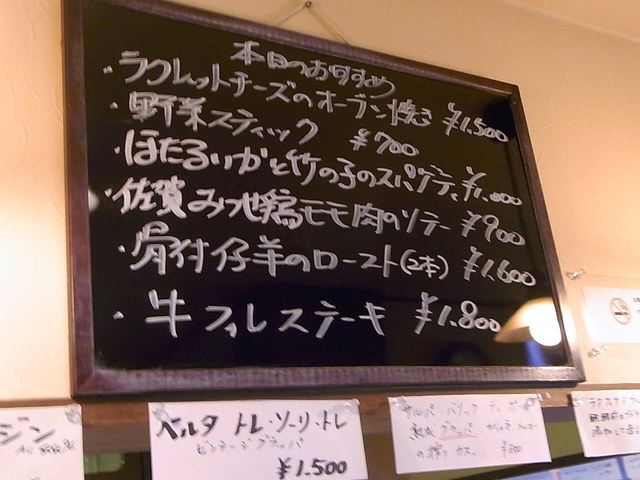 本日のおすすめ
・ラクレットチーズのオーブン焼き ¥1,500
・野菜スティック ¥700
・ほたるいかと竹の子のスパゲティ ¥1,000
・佐賀みつせ鶏モモ肉のソテー ¥900
・骨付仔羊のロースト(2本) ¥1,600
・牛フィレステーキ ¥1,800
ジン
ベルタ トレ・ソーリ・トレ
ビンテージグラッパ
¥1,500
サルパ・バリック・ディ・ポーリ
熟成グラッパ
¥800